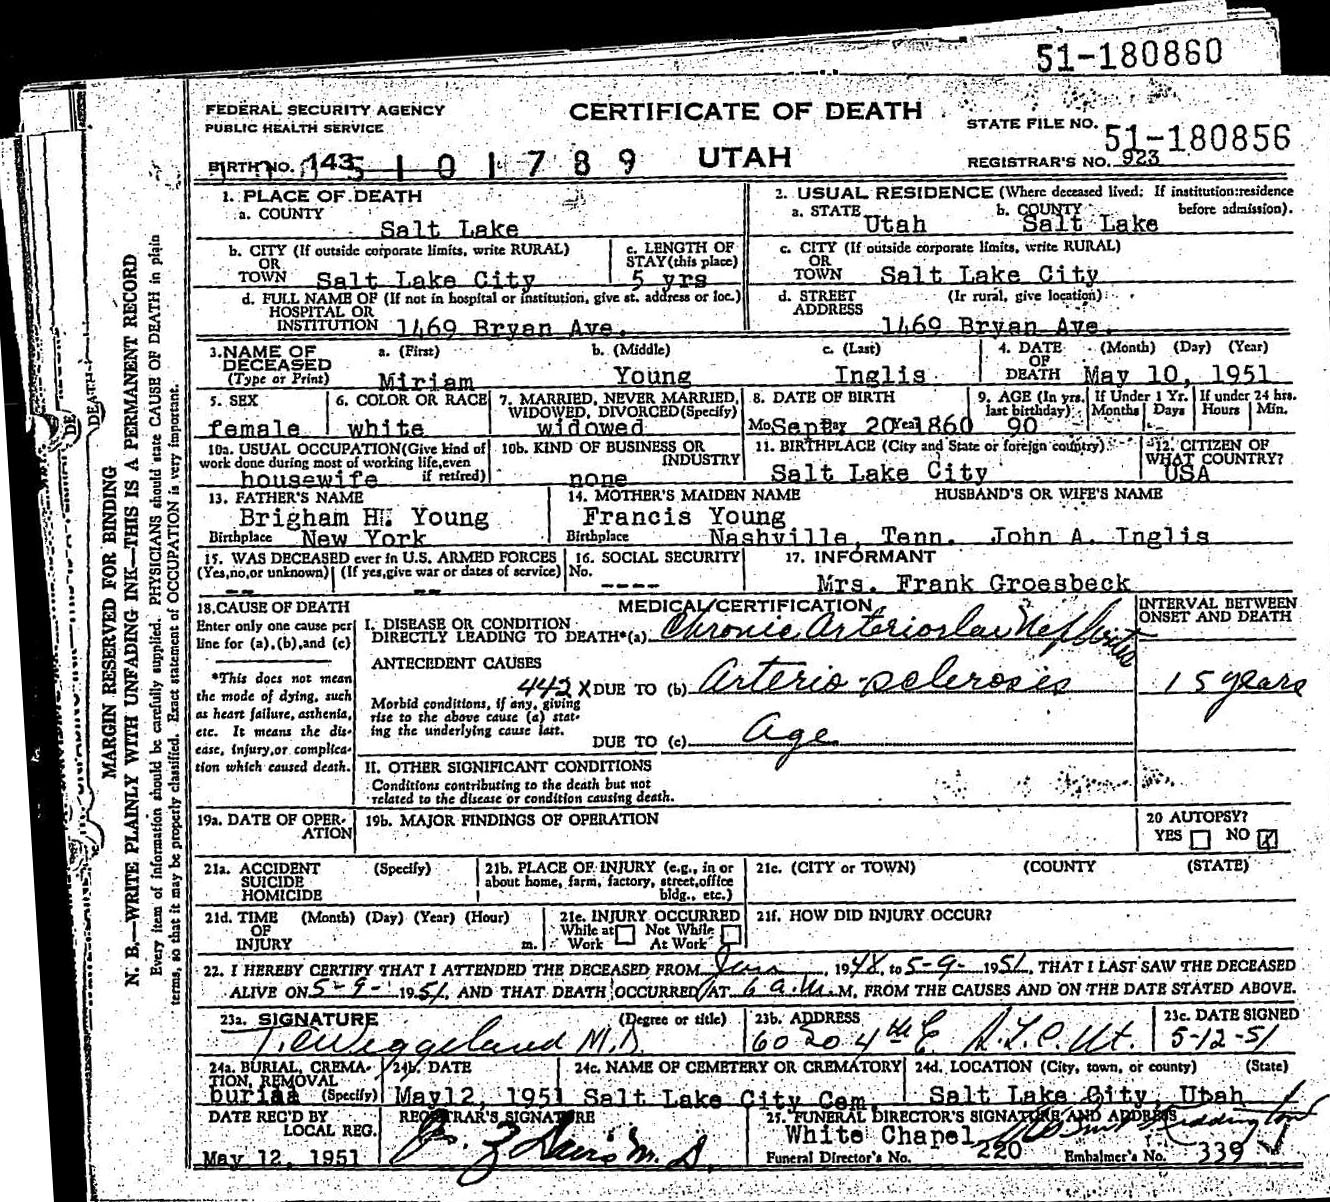 51-180860
FEDERAL SECURITY AGENCY
PUBLIC HEALTH SERVICE
CERTIFICATE OF DEATH
STATE FILE NO. 51-180856
BIRTH NO. 143
101789
UTAH
REGISTRAR'S NO. 923
1. PLACE OF DEATH
a. COUNTY
Salt Lake
2. USUAL RESIDENCE (Where deceased lived: If institution:residence before admission).
a. STATE Utah b. COUNTY Salt Lake
b. CITY (If outside corporate limits, write RURAL)
OR
TOWN Salt Lake City
c. LENGTH OF
STAY(this place)
5 yrs
c. CITY (If outside corporate limits, write RURAL)
OR
TOWN Salt Lake City
d. FULL NAME OF (If not in hospital or institution, give st. address or loc.)
HOSPITAL OR
INSTITUTION 1469 Bryan Ave.
d. STREET (If rural, give location)
ADDRESS
1469 Bryan Ave.
3. NAME OF
DECEASED
(Type or Print)
a. (First) b. (Middle) c. (Last)
Miriam Young Inglis
4. DATE (Month) (Day) (Year)
OF
DEATH May 10, 1951
5. SEX
female
6. COLOR OR RACE
white
7. MARRIED, NEVER MARRIED,
WIDOWED, DIVORCED(Specify)
widowed
8. DATE OF BIRTH
Mo Sep Day 20 Year 1860
9. AGE (In yrs. last birthday)
90
If Under 1 Yr.
Months Days
If under 24 hrs.
Hours Min.
10a. USUAL OCCUPATION(Give kind of
work done during most of working life, even
if retired)
housewife
10b. KIND OF BUSINESS OR
INDUSTRY
none
11. BIRTHPLACE (City and State or foreign country)
Salt Lake City
12. CITIZEN OF
WHAT COUNTRY?
USA
13. FATHER'S NAME
Brigham H. Young
Birthplace New York
14. MOTHER'S MAIDEN NAME
Francis Young
Birthplace Nashville, Tenn.
HUSBAND'S OR WIFE'S NAME
John A. Inglis
15. WAS DECEASED ever in U.S. ARMED FORCES
(Yes,no,or unknown) (If yes,give war or dates of service)
-- --
16. SOCIAL SECURITY
No.
----
17. INFORMANT
Mrs. Frank Groesbeck
18. CAUSE OF DEATH
Enter only one cause per
line for (a),(b),and (c)
*This does not mean
the mode of dying, such
as heart failure, asthenia,
etc. It means the dis-
ease, injury,or complica-
tion which caused death.
MEDICAL CERTIFICATION
INTERVAL BETWEEN
ONSET AND DEATH
I. DISEASE OR CONDITION
DIRECTLY LEADING TO DEATH*(a) Chronic Arteriorlar Nephritis
ANTECEDENT CAUSES
442 X DUE TO (b) Arterio-sclerosis 15 years
Morbid conditions, if any, giving
rise to the above cause (a) stat-
ing the underlying cause last.
DUE TO (c) Age
II. OTHER SIGNIFICANT CONDITIONS
Conditions contributing to the death but not
related to the disease or condition causing death.
19a. DATE OF OPER-
ATION
19b. MAJOR FINDINGS OF OPERATION
20 AUTOPSY?
YES NO X
21a. ACCIDENT (Specify)
SUICIDE
HOMICIDE
21b. PLACE OF INJURY (e.g., in or
about home, farm, factory, street,office
bldg., etc.)
21c. (CITY or TOWN) (COUNTY) (STATE)
21d. TIME (Month) (Day) (Year) (Hour)
OF
INJURY m.
21e. INJURY OCCURRED
While at Not While
Work At Work
21f. HOW DID INJURY OCCUR?
22. I HEREBY CERTIFY THAT I ATTENDED THE DECEASED FROM Jan, 1948, to 5-9-1951, THAT I LAST SAW THE DECEASED
ALIVE ON 5-9-1951, AND THAT DEATH OCCURRED AT 6 a.m. M, FROM THE CAUSES AND ON THE DATE STATED ABOVE.
23a. SIGNATURE (Degree or title)
M.D.
23b. ADDRESS
S.L.C. Ut.
23c. DATE SIGNED
5-12-51
24a. BURIAL, CREMA-
TION, REMOVAL
(Specify)
burial
24b. DATE
May 12, 1951
24c. NAME OF CEMETERY OR CREMATORY
Salt Lake City Cem
24d. LOCATION (City, town, or county) (State)
Salt Lake City, Utah
DATE REC'D BY
LOCAL REG.
May 12, 1951
REGISTRAR'S SIGNATURE
M.D.
25. FUNERAL DIRECTOR'S SIGNATURE AND ADDRESS
White Chapel
Funeral Director's No. 220 Embalmer's No. 339
MARGIN RESERVED FOR BINDING
N. B.—WRITE PLAINLY WITH UNFADING INK—THIS IS A PERMANENT RECORD
Every item of information should be carefully supplied. PHYSICIANS should state CAUSE OF DEATH in plain
terms, so that it may be properly classified. Exact statement of OCCUPATION is very important.